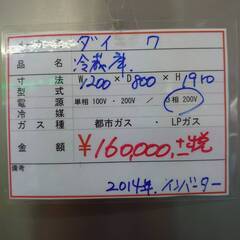 ダイワ
品名 冷蔵庫
寸法 W1200×D800×H1910
型式
電源 単相 100V・200V / 3相 200V
冷媒
ガス種 都市ガス・LPガス
金額 ¥160,000,+税
備考
2014年.インバーター